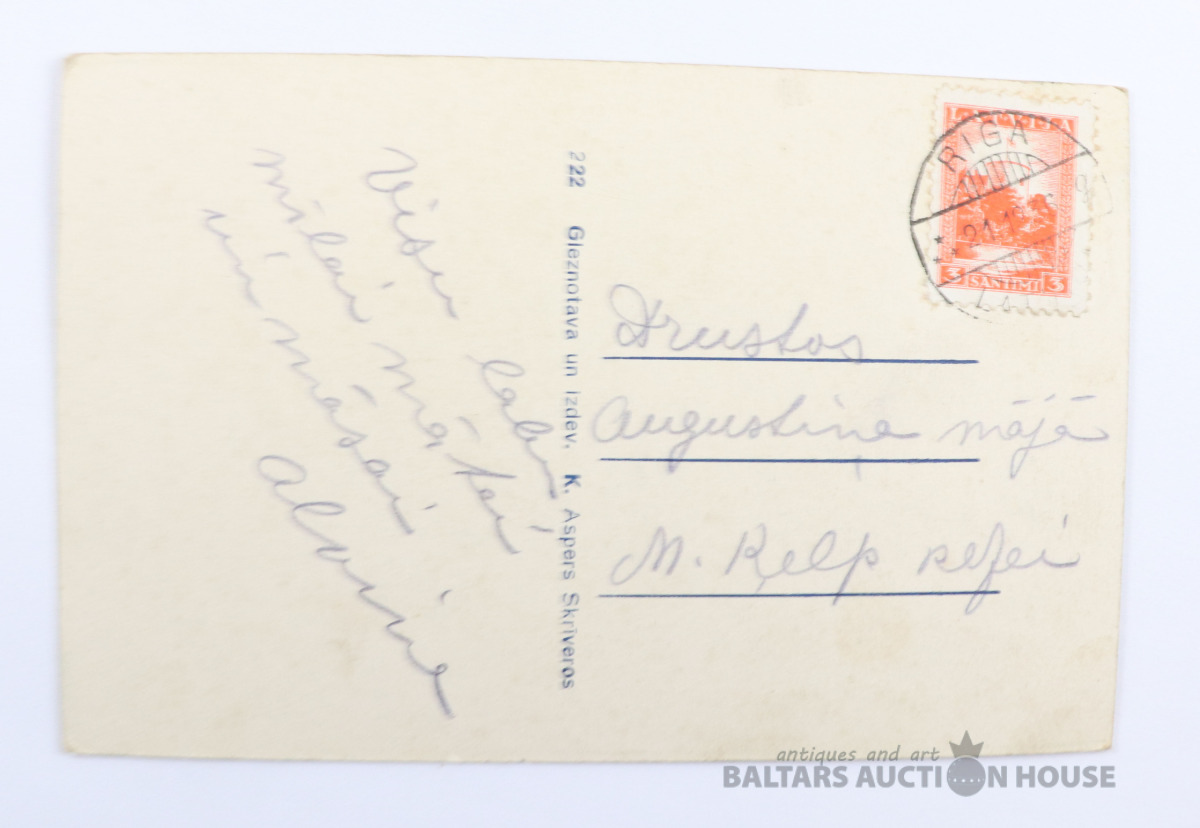 Visu labu
mīļai mātei
un māsai
Alvine
222 Gleznotava un izdev. K. Aspers Skrīveros
LATVIJA
RIGA
3 SANTIMI 3
Drustos
Augustiņa mājā
M. Ķelp
antiques and art
BALTARS AUCTION HOUSE